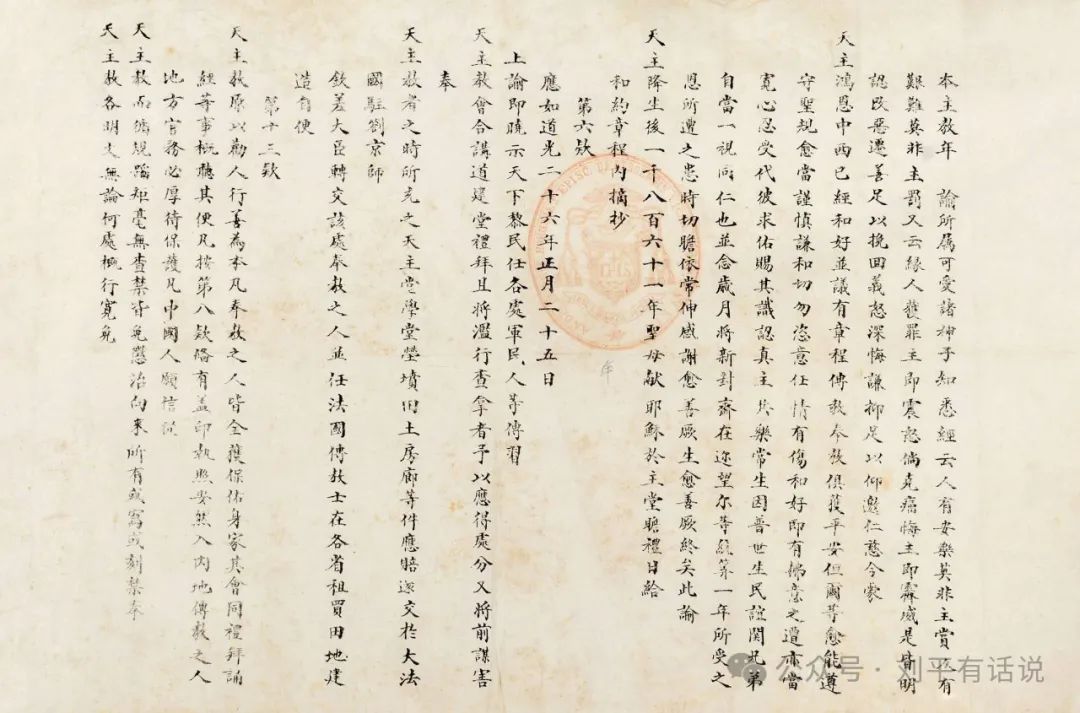 本主教年 諭所属可愛諸神子知悉經云人有安樂莫非主賞人有
艱難莫非主罰又云縁人獲罪主即震怒倘克痛悔主即霽威是皆明
認改惡遷善足以挽回義怒深悔謙抑足以仰邀仁慈今蒙
天主鴻恩中西已經和好並議有章程傳教奉教俱獲平安但爾等愈能遵
守聖規愈當謹慎謙和切勿恣意任情有傷和好即有拂意之遭亦當
寛心忍受代彼求佑賜其識認真主共樂常生因普世生民誼関兄弟
自當一視同仁也並念歲月將新封齋在迩望尔等統算一年所受之
恩所遭之患時切瞻依常伸感謝愈善厥生愈善厥終矣此諭
天主降生後一千八百六十一年聖母献耶穌於主堂瞻禮日給
年
和約章程內摘抄
第六欵
應如道光二十六年正月二十五日
上諭即曉示天下黎民任各處軍民人等傳習
天主教會合講道建堂禮拜且將濫行查拿者予以應得處分又將前謀害
奉
天主教者之時所充之天主堂學堂塋墳田土房廊等件應賠还交於大法
國駐劄京師
欽差大臣轉交該處奉教之人並任法國傳教士在各省租買田地建
造自便
第十三欵
天主教原以勸人行善為本凡奉教之人皆全獲保佑身家其會同禮拜誦
經等事概聽其便凡按第八欵備有盖印執照安然入內地傳教之人
地方官務必厚待保護凡中國人願信從
天主教而循規蹈矩毫無查禁皆免懲治向來所有或寫或刻禁奉
天主教各明文無論何處概行寛免
IHS
公众号·刘平有话说